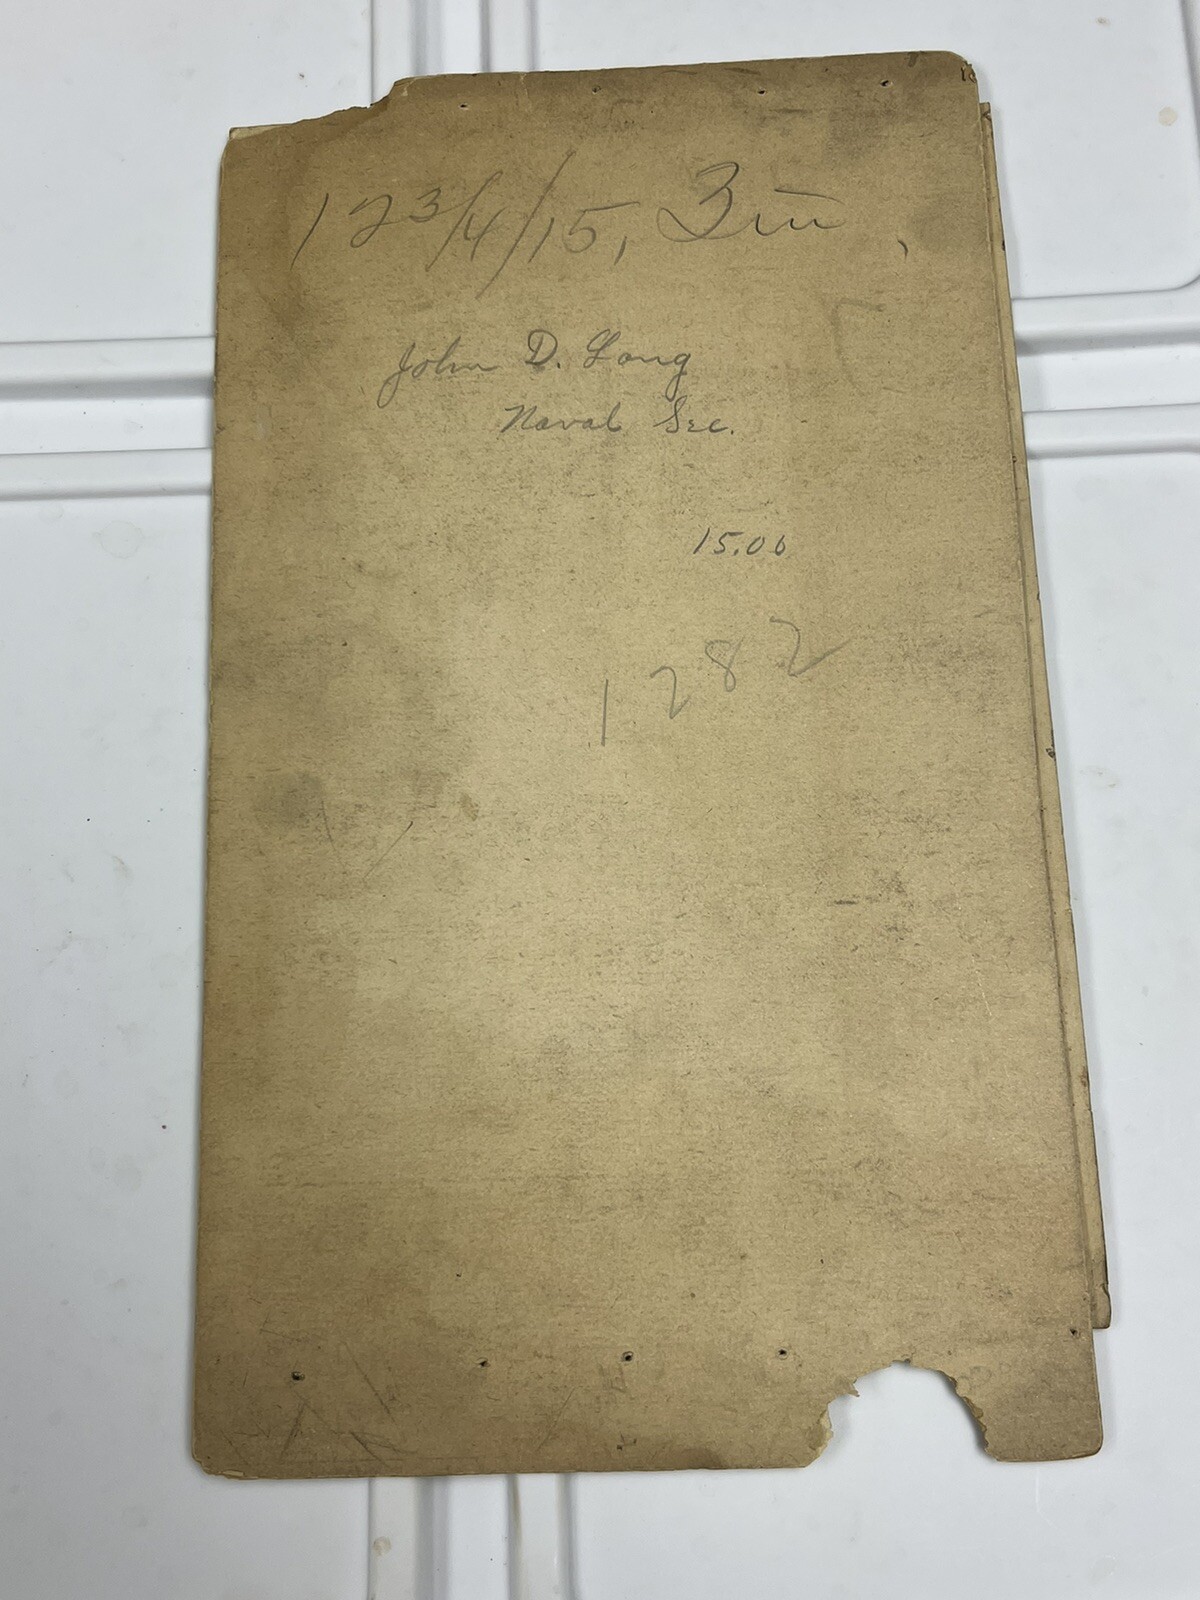 12 3/4/15, 3 in
John D. Long
Naval Sec.
15.00
1282